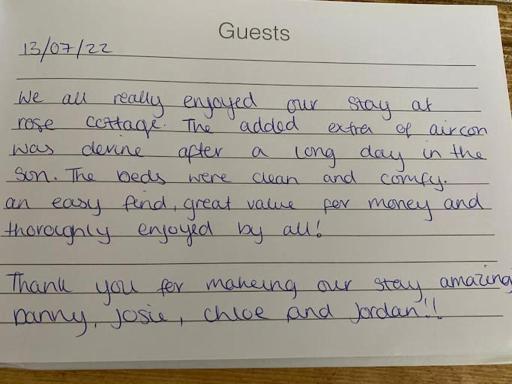 Guests
13/07/22
We all really enjoyed our stay at
rose cottage. The added extra of aircon
was devine after a long day in the
sun. The beds were clean and comfy.
an easy find, great value for money and
thoroughly enjoyed by all!
Thank you for makeing our stay amazing
Danny, Josie, Chloe and Jordan!!